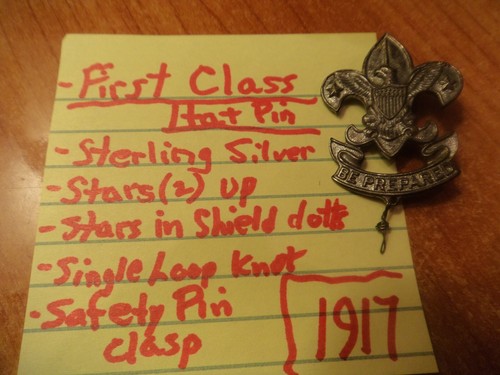 - First Class
Hat Pin
- Sterling Silver
- Stars (2) Up
- Stars in Shield dotts
- Single Loop Knot
- Safety Pin
clasp
1917
BE PREPARED